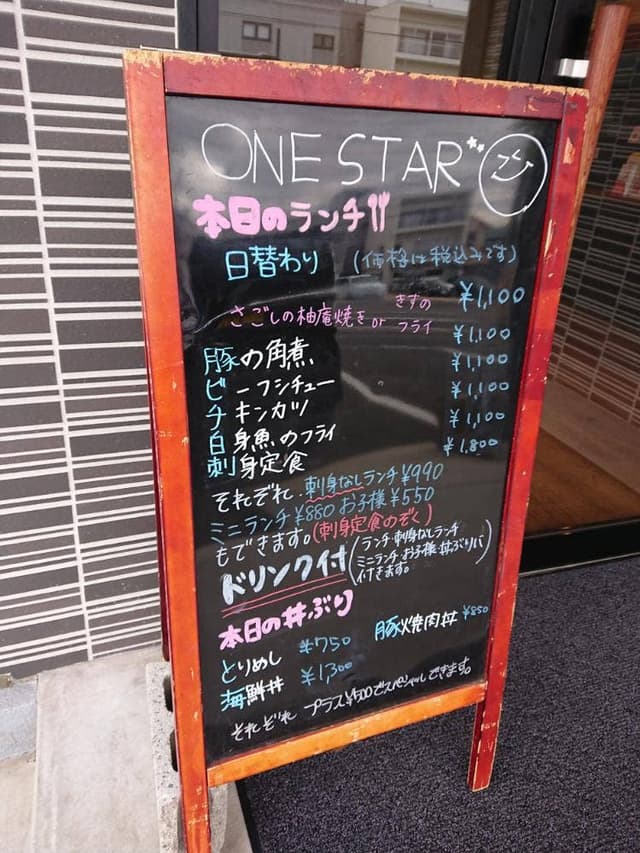 ONE STAR
本日のランチ
日替わり (価格は税込みです)
¥1,100
さごしの柚庵焼き or きすのフライ
豚の角煮 ¥1,100
ビーフシチュー ¥1,100
チキンカツ ¥1,100
白身魚のフライ ¥1,100
刺身定食 ¥1,800
それぞれ.刺身なしランチ¥990
ミニランチ¥880お子様¥550
もできます。(刺身定食のぞく)
ドリンク付(ランチ・刺身なしランチ
ミニランチ・お子様・丼ぶりに
付きます。)
本日の丼ぶり
とりめし ¥750 豚焼肉丼 ¥850
海鮮丼 ¥1,300
それぞれ プラス¥500でスペシャルできます。